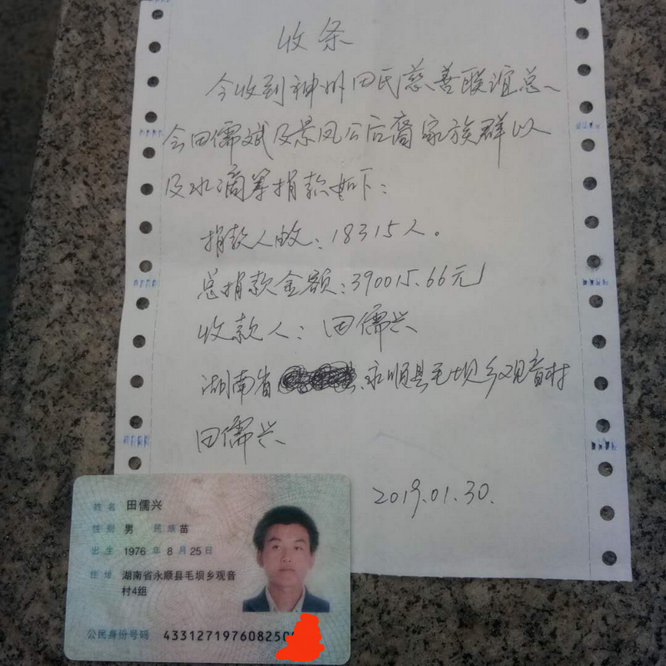 收条
今收到神州田氏慈善联谊总
会田儒斌及景凤公后裔家族群以
及水滴筹捐款如下：
捐款人数：18315人。
总捐款金额：390015.66元
收款人：田儒兴
湖南省 永顺县毛坝乡观音村
田儒兴
2019.01.30.
姓名 田儒兴
性别 男 民族 苗
出生 1976 年 8 月 25 日
住址 湖南省永顺县毛坝乡观音
村4组
公民身份号码 43312719760825